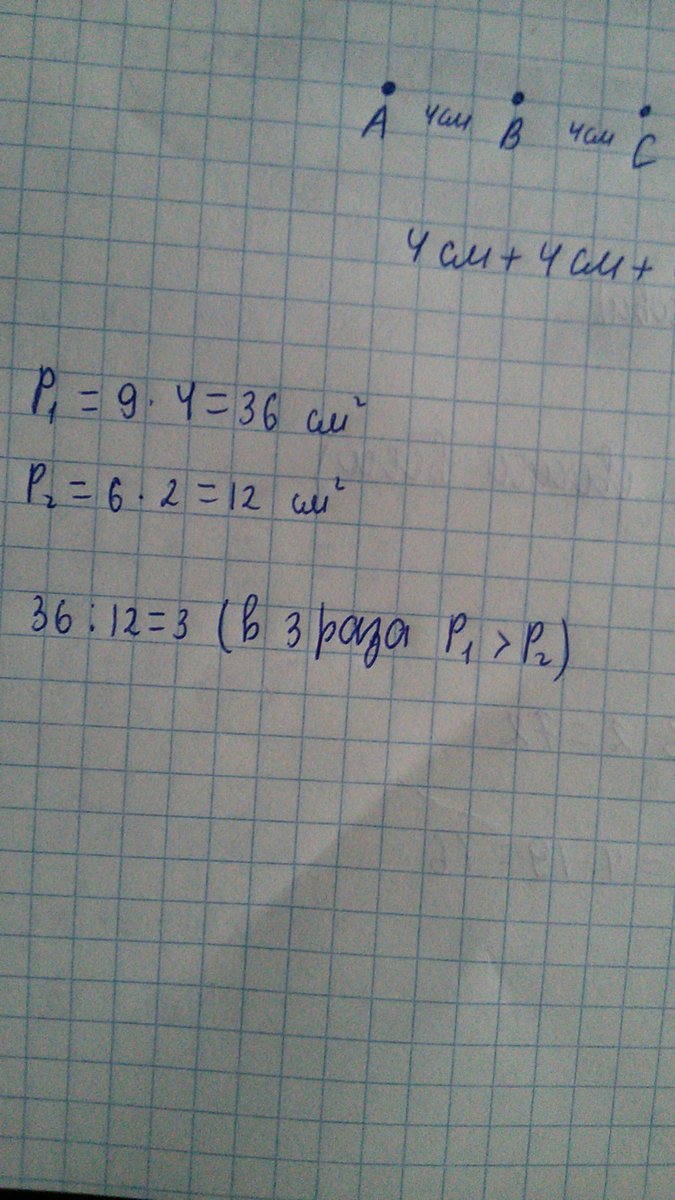 A 4см B 4см C
4 см + 4 см +
P₁ = 9 · 4 = 36 см²
P₂ = 6 · 2 = 12 см²
36 : 12 = 3 (в 3 раза P₁ > P₂)